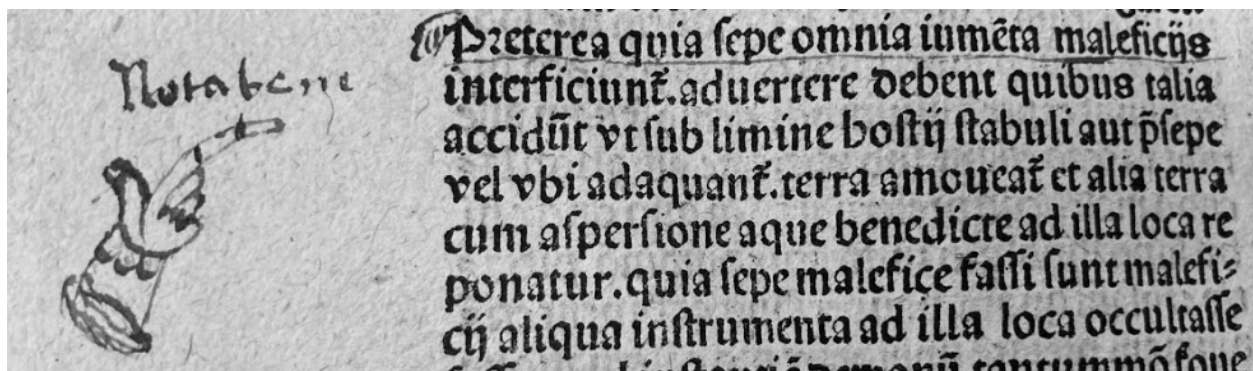 Nota bene
Preterea quia ſepe omnia iumẽta maleficijs
interficiunt᷑. aduertere debent quibus talia
accidũt vt ſub limine hoſtij ſtabuli aut p̄ſepe
vel vbi adaquant᷑. terra amoueat᷑ et alia terra
cum aſperſione aque benedicte ad illa loca re
ponatur. quia ſepe malefice faſſi ſunt malefi⸗
cij aliqua inſtrumenta ad illa loca occultaſſe